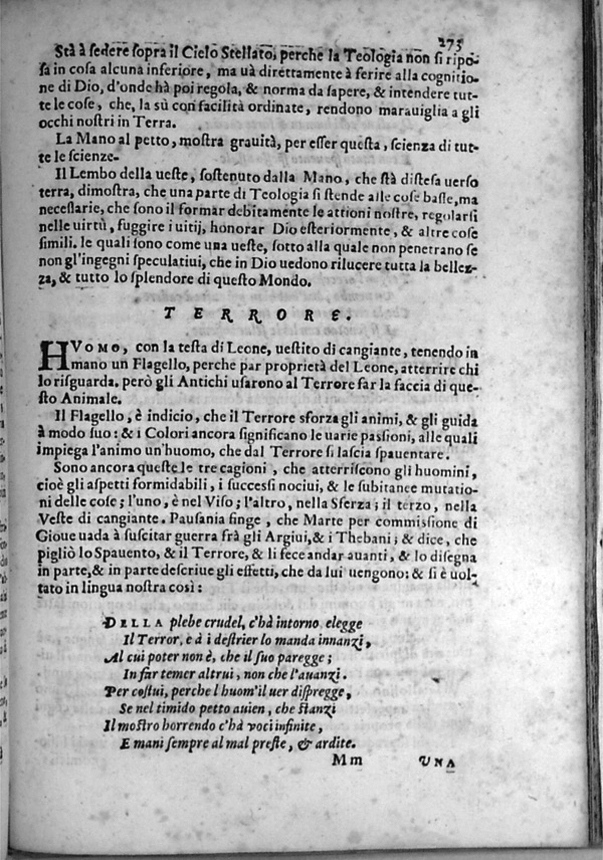 275
Stà à sedere sopra il Cielo Stellato, perche la Teologia non si ripo-
sa in cosa alcuna inferiore, ma uà direttamente à ferire alla cognitio-
ne di Dio, d'onde hà poi regola, & norma da sapere, & intendere tut-
te le cose, che, la sù con facilità ordinate, rendono marauiglia a gli
occhi nostri in Terra.
La Mano al petto, mostra grauità, per esser questa, scienza di tut-
te le scienze.
Il Lembo della ueste, sostenuto dalla Mano, che stà distesa uerso
terra, dimostra, che una parte di Teologia si stende alle cose basse, ma
necessarie, che sono il formar debitamente le attioni nostre, regolarsi
nelle uirtù, fuggire i uitij, honorar Dio esteriormente, & altre cose
simili. le quali sono come una ueste, sotto alla quale non penetrano se
non gl'ingegni speculatiui, che in Dio uedono rilucere tutta la bellez-
za, & tutto lo splendore di questo Mondo.
TERRORE.
HVOMO, con la testa di Leone, uestito di cangiante, tenendo in
mano un Flagello, perche par proprietà del Leone, atterrire chi
lo risguarda. però gli Antichi usarono al Terrore far la faccia di que-
sto Animale.
Il Flagello, è indicio, che il Terrore sforza gli animi, & gli guida
à modo suo: & i Colori ancora significano le uarie passioni, alle quali
impiega l'animo un'huomo, che dal Terrore si lascia spauentare.
Sono ancora queste le tre cagioni, che atterriscono gli huomini,
cioè gli aspetti formidabili, i successi nociui, & le subitance mutatio-
ni delle cose; l'uno, è nel Viso; l'altro, nella Sferza; il terzo, nella
Veste di cangiante. Pausania finge, che Marte per commissione di
Gioue uada à suscitar guerra frà gli Argiui, & i Thebani; & dice, che
pigliò lo Spauento, & il Terrore, & li fece andar auanti, & lo disegna
in parte, & in parte descriue gli effetti, che da lui uengono: & si è uol-
tato in lingua nostra così:
DELLA plebe crudel, c'hà intorno elegge
Il Terror, e à i destrier lo manda innanzi,
Al cui poter non è, che il suo paregge;
In far temer altrui, non che l'auanzi.
Per costui, perche l huom'il uer dispregge,
Se nel timido petto auien, che stanzi
Il mostro horrendo c'hà voci infinite,
E mani sempre al mal preste, & ardite.
Mm VNA